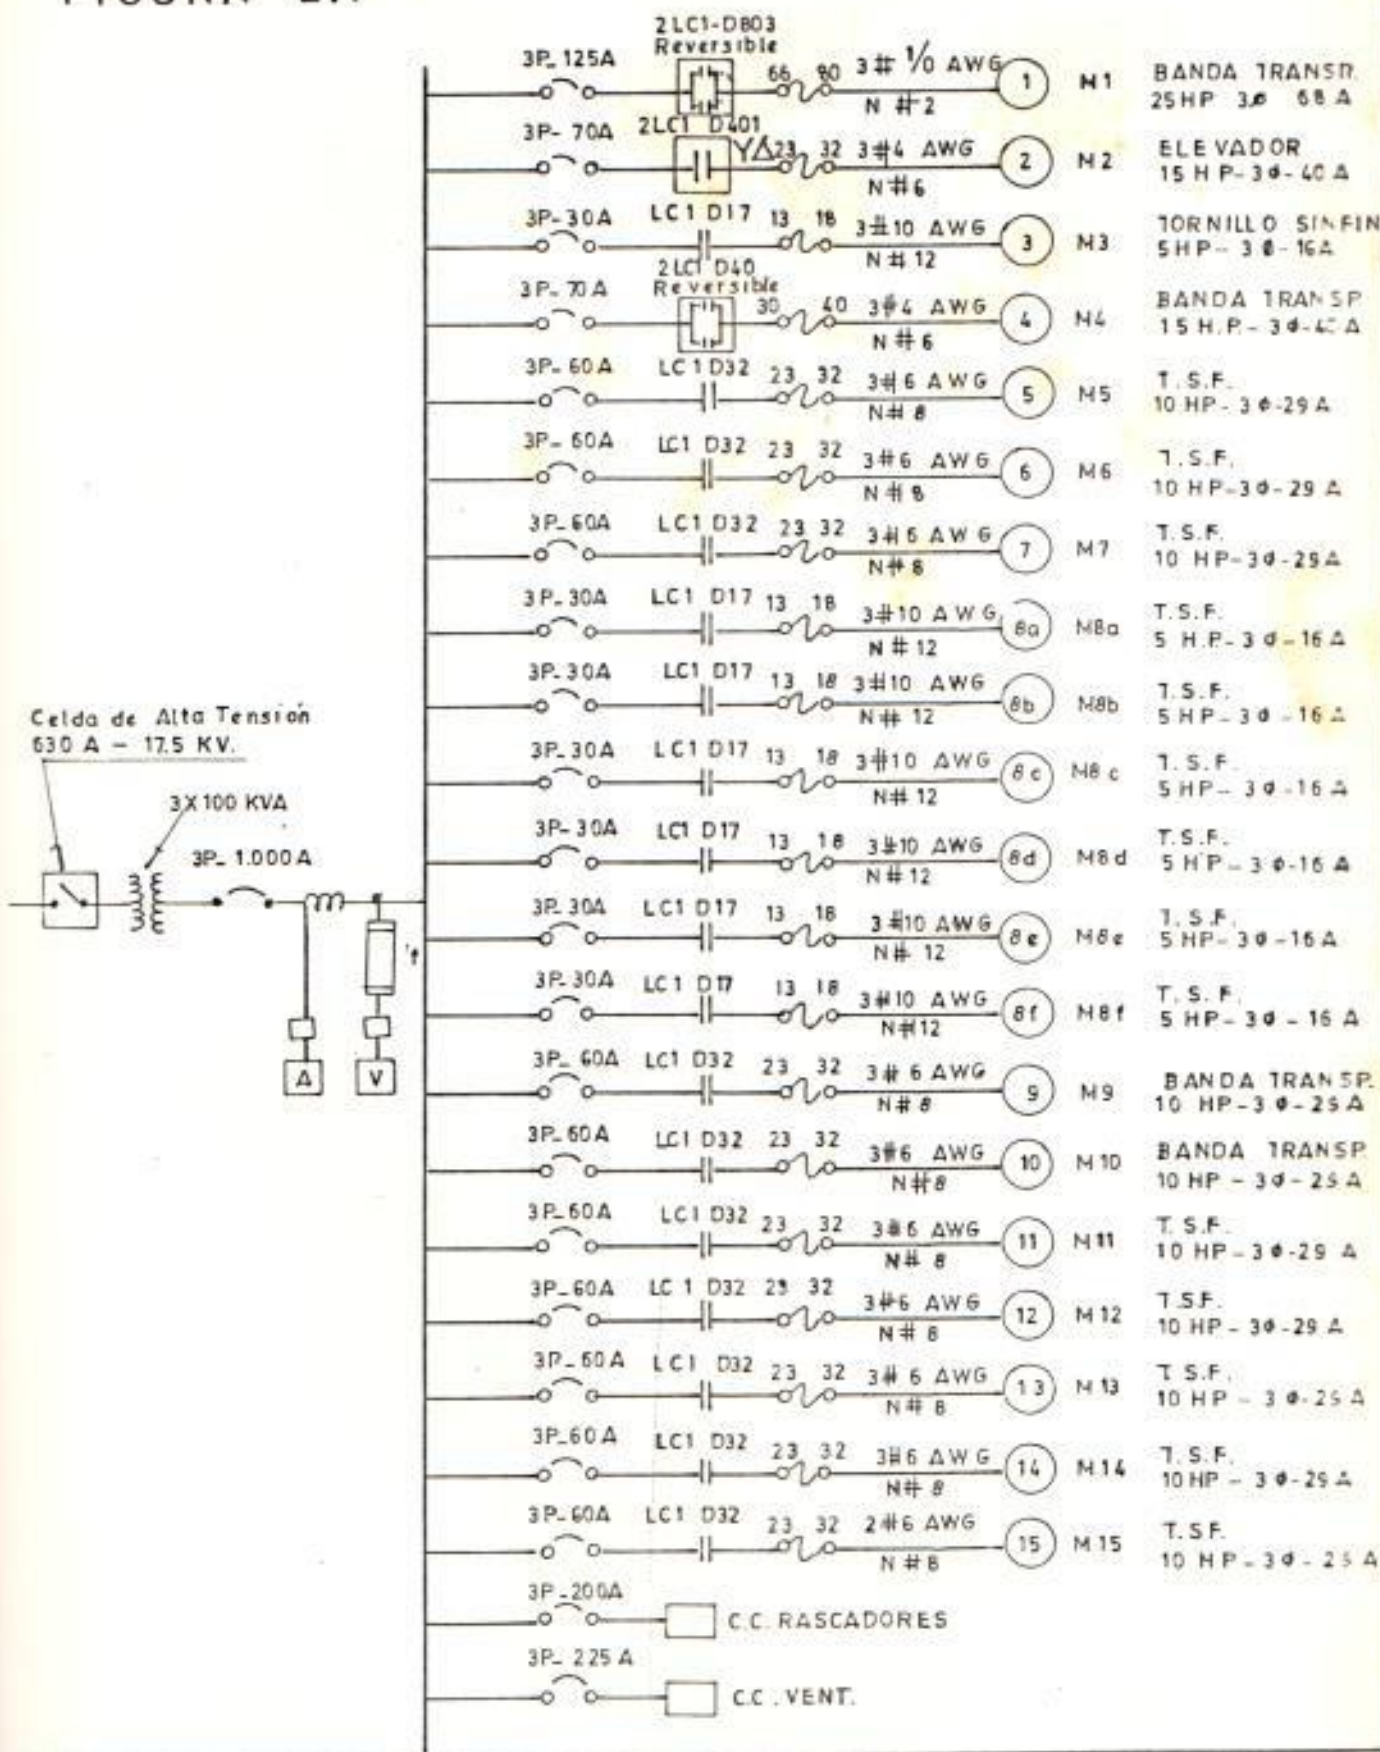 3P_125A
2LC1-D803
Reversible
66 80
3# 1/0 AWG
N #2
1
M1
BANDA TRANSP.
25HP 3ø 68A
3P-70A
2LC1 D401
YΔ
23 32
3#4 AWG
N#6
2
M2
ELEVADOR
15HP-3ø-40A
3P-30A
LC1 D17
13 18
3#10 AWG
N#12
3
M3
TORNILLO SINFIN
5HP-3ø-16A
3P-70A
2LC1 D40
Reversible
30 40
3#4 AWG
N#6
4
M4
BANDA TRANSP
15H.P.-3ø-40A
3P-60A
LC1D32
23 32
3#6 AWG
N#8
5
M5
T.S.F.
10HP-3ø-29A
3P-60A
LC1 D32
23 32
3#6 AWG
N#8
6
M6
T.S.F.
10HP-3ø-29A
3P-60A
LC1 D32
23 32
3#6 AWG
N#8
7
M7
T.S.F.
10 HP-3ø-29A
3P-30A
LC1 D17
13 18
3#10 AWG
N#12
8a
M8a
T.S.F.
5 H.P.-3ø-16A
3P-30A
LC1 D17
13 18
3#10 AWG
N#12
8b
M8b
T.S.F.
5HP-3ø-16A
Celda de Alta Tensión
630 A - 17.5 KV.
3X100 KVA
3P_1.000A
A
V
3P-30A
LC1 D17
13 18
3#10 AWG
N#12
8c
M8c
T.S.F.
5HP-3ø-16A
3P-30A
LC1 D17
13 18
3#10 AWG
N#12
8d
M8d
T.S.F.
5HP-3ø-16A
3P-30A
LC1 D17
13 18
3#10 AWG
N#12
8e
M8e
T.S.F.
5HP-3ø-16A
3P-30A
LC1 D17
13 18
3#10 AWG
N#12
8f
M8f
T.S.F.
5HP-3ø-16A
3P-60A
LC1 D32
23 32
3#6 AWG
N#8
9
M9
BANDA TRANSP.
10 HP-3ø-29A
3P-60A
LC1 D32
23 32
3#6 AWG
N#8
10
M10
BANDA TRANSP.
10HP-3ø-29A
3P-60A
LC1 D32
23 32
3#6 AWG
N#8
11
M11
T.S.F.
10 HP-3ø-29A
3P-60A
LC1 D32
23 32
3#6 AWG
N#8
12
M12
T.S.F.
10HP-3ø-29A
3P-60A
LC1 D32
23 32
3#6 AWG
N#8
13
M13
T.S.F.
10HP-3ø-29A
3P-60A
LC1 D32
23 32
3#6 AWG
N#8
14
M14
T.S.F.
10HP-3ø-29A
3P-60A
LC1 D32
23 32
2#6 AWG
N#8
15
M15
T.S.F.
10HP-3ø-29A
3P-200A
C.C. RASCADORES
3P-225A
C.C. VENT.